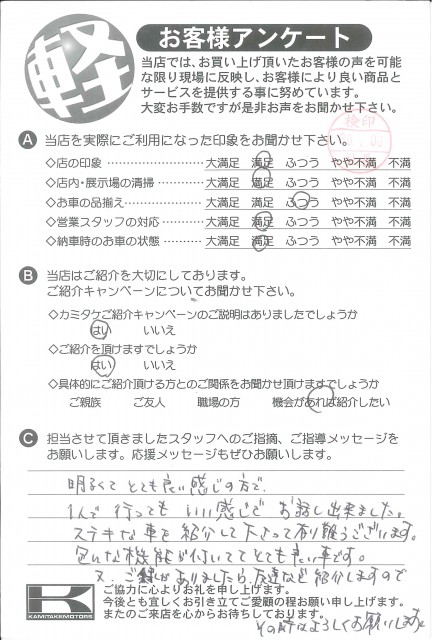 軽
お客様アンケート
当店では、お買い上げ頂いたお客様の声を可能
な限り現場に反映し、お客様により良い商品と
サービスを提供する事に努めています。
大変お手数ですが是非お声をお聞かせ下さい。
検印
A 当店を実際にご利用になった印象をお聞かせ下さい。
◇店の印象 …………………… 大満足 満足 ふつう やや不満 不満
◇店内・展示場の清掃 ………… 大満足 満足 ふつう やや不満 不満
◇お車の品揃え ……………… 大満足 満足 ふつう やや不満 不満
◇営業スタッフの対応 ………… 大満足 満足 ふつう やや不満 不満
◇納車時のお車の状態 ………… 大満足 満足 ふつう やや不満 不満
B 当店はご紹介を大切にしております。
ご紹介キャンペーンについてお聞かせ下さい。
◇カミタケご紹介キャンペーンのご説明はありましたでしょうか
はい いいえ
◇ご紹介を頂けますでしょうか
はい いいえ
◇具体的にご紹介頂ける方とのご関係をお聞かせ頂けますでしょうか
ご親族 ご友人 職場の方 機会があれば紹介したい
C 担当させて頂きましたスタッフへのご指摘、ご指導メッセージを
お願いします。応援メッセージもぜひお願いします。
明るくてとても良い感じの方で、
1人で行ってもいい感じでお話し出来ました。
ステキな車を紹介して下さって有り難うございます。
色んな機能が付いててとても良い車です。
又、ご縁がありましたら、友達など紹介しますので
その時はよろしくお願いします
ご協力に心よりお礼を申し上げます。
今後とも宜しくお引き立てご愛顧の程お願い申し上げます。
またのご来店を心からお待ちしております。
KAMITAKE MOTORS